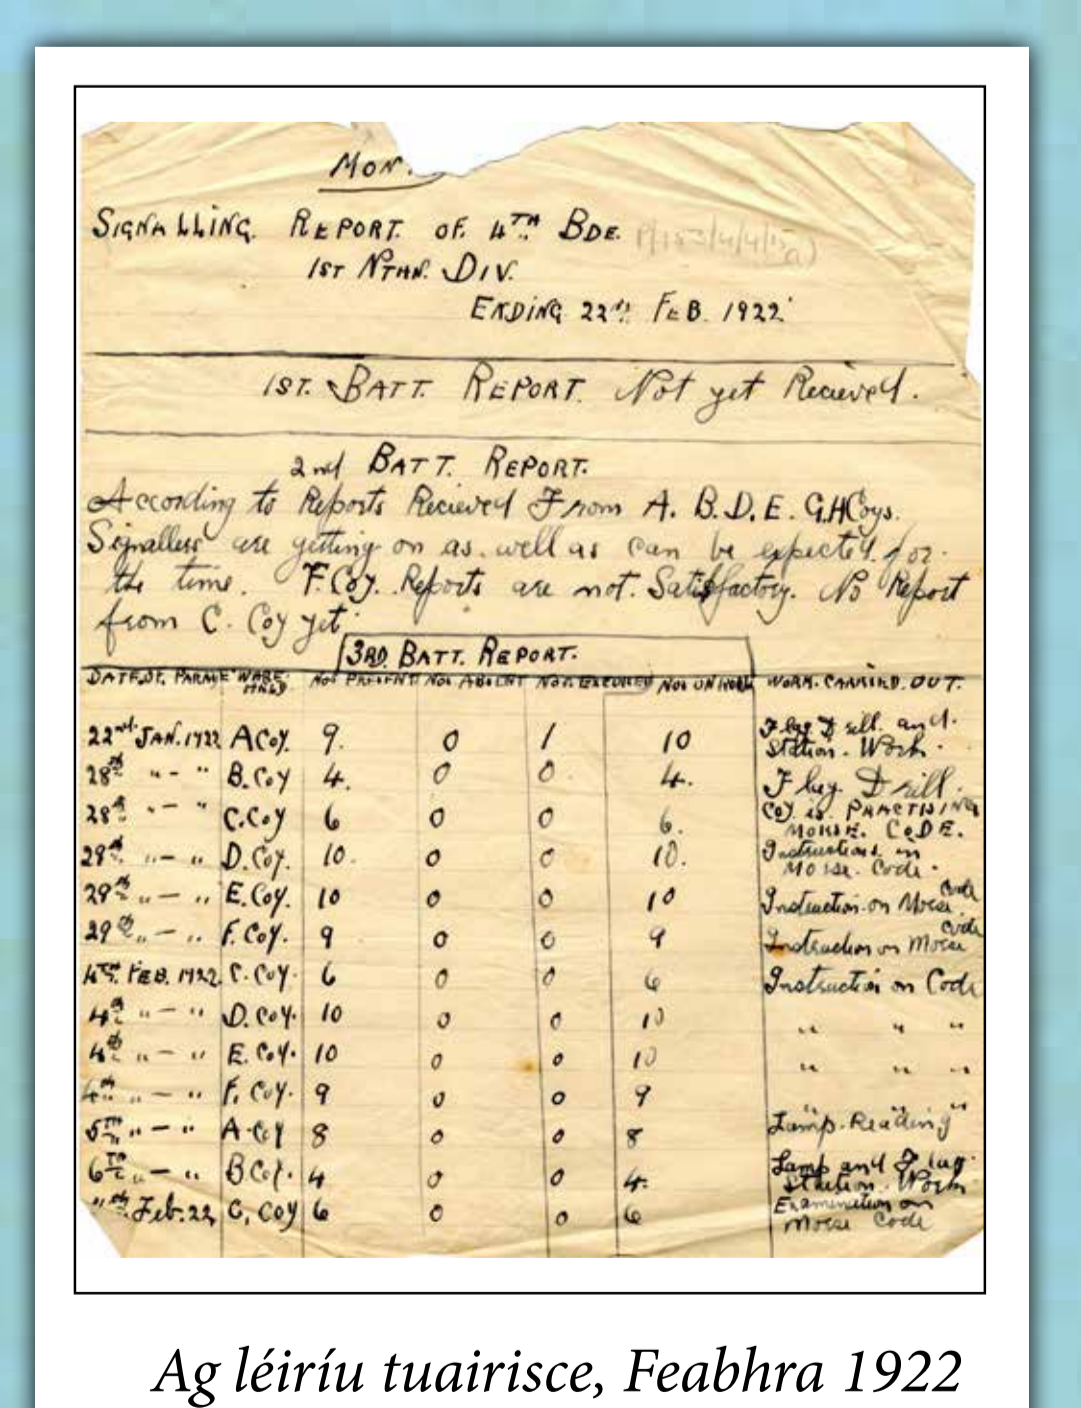 Mon.
Signalling. Report. of. 4TH Bde.
1st Nthn. Div.
Ending 22nd Feb. 1922
1st. Batt. Report. Not yet Recieved.
2nd Batt. Report.
According to Reports Recieved From A. B. D. E. G.H Coys.
Signallers are getting on as. well as can be expected. for.
the time. F. Coy. Reports are not. Satisfactory. No Report
from C. Coy yet.
3RD. Batt. Report.
Date. of. Parade Nos Present Nos Absent Nos. Excused Nos on Roll Work. Carried. Out.
22nd. Jan. 1922 A Coy. 9. 0 1 10 Flag Drill. and. Station. Work.
28th " - " B. Coy 4. 0 0. 4. Flag. Drill.
28th " - " C. Coy 6 0 0 6. Coy. is. Practising Morse. Code.
29th " - " D. Coy. 10. 0 0 10. Instructions in Morse. Code.
29th " - " E. Coy. 10 0 0 10 Instruction. on Morse Code
29th " - " F. Coy. 9 0 0 9 Instruction on Morse Code
4th. Feb. 1922. C. Coy. 6 0 0 6 Instruction on Code
4th " - " D. Coy. 10 0 0 10 " " "
4th " - " E. Coy. 10 0 0 10 " " "
4th " - " F. Coy. 9 0 0 9 " " "
5TH " - " A. Coy 8 0 0 8 Lamp. Reading
6TH " - " B Coy. 4 0 0 4. Lamp and Flag. Station. Work
Feb. 22 C, Coy 6 0 0 6 Examination on Morse Code
Ag léiríu tuairisce, Feabhra 1922